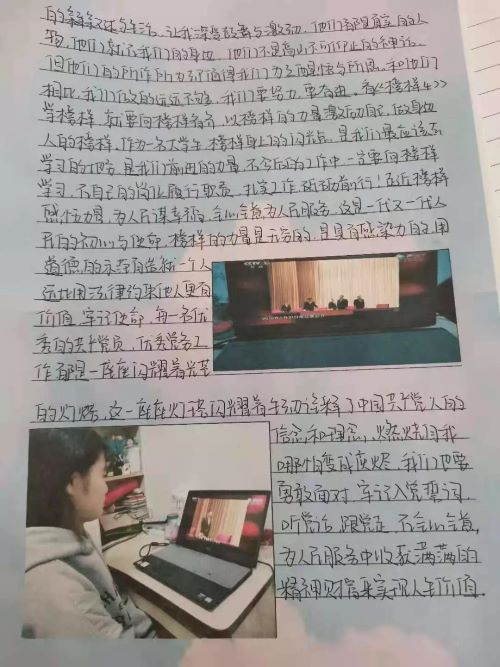 的解放还与生活，让我深受鼓舞与激动，他们都是真实的人
物，他们就在我们的身边，他们不是高山不可仰止的神话，
但他们的所作所为都值得我们为之思悟与所思。和他们
相比，我们做的远远不够，我们要努力，要奋进。看《榜样4》
学榜样，就要向榜样看齐，以榜样的力量激励自己，做身边
人的榜样，作为一名大学生，榜样身上的闪光点，是我们最应该去
学习的地方，是我们前进的力量，在今后的工作中一定要向榜样
学习，在自己的岗位履行职责，扎实工作，砥砺前行！走近榜样
感悟力量，为人民谋幸福，全心全意为人民服务，这是一代又一代人
民的初心与使命，榜样的力量是无穷的，是具有感染力的，用
道德的示范自告诉一个人
远比用法律约束他人更有
价值，牢记使命，每一名优
秀的共产党员，优秀党务工
作都是一座座闪耀着光芒
的灯塔，这一座座灯塔闪耀着生动诠释了中国共产党人的
信念和理念，燃烧自我
哪怕变成灰烬，我们也要
勇敢面对，牢记入党誓词，
听党话，跟党走，全心全意，
为人民服务中收获满满的
精神财富来实现人生价值。